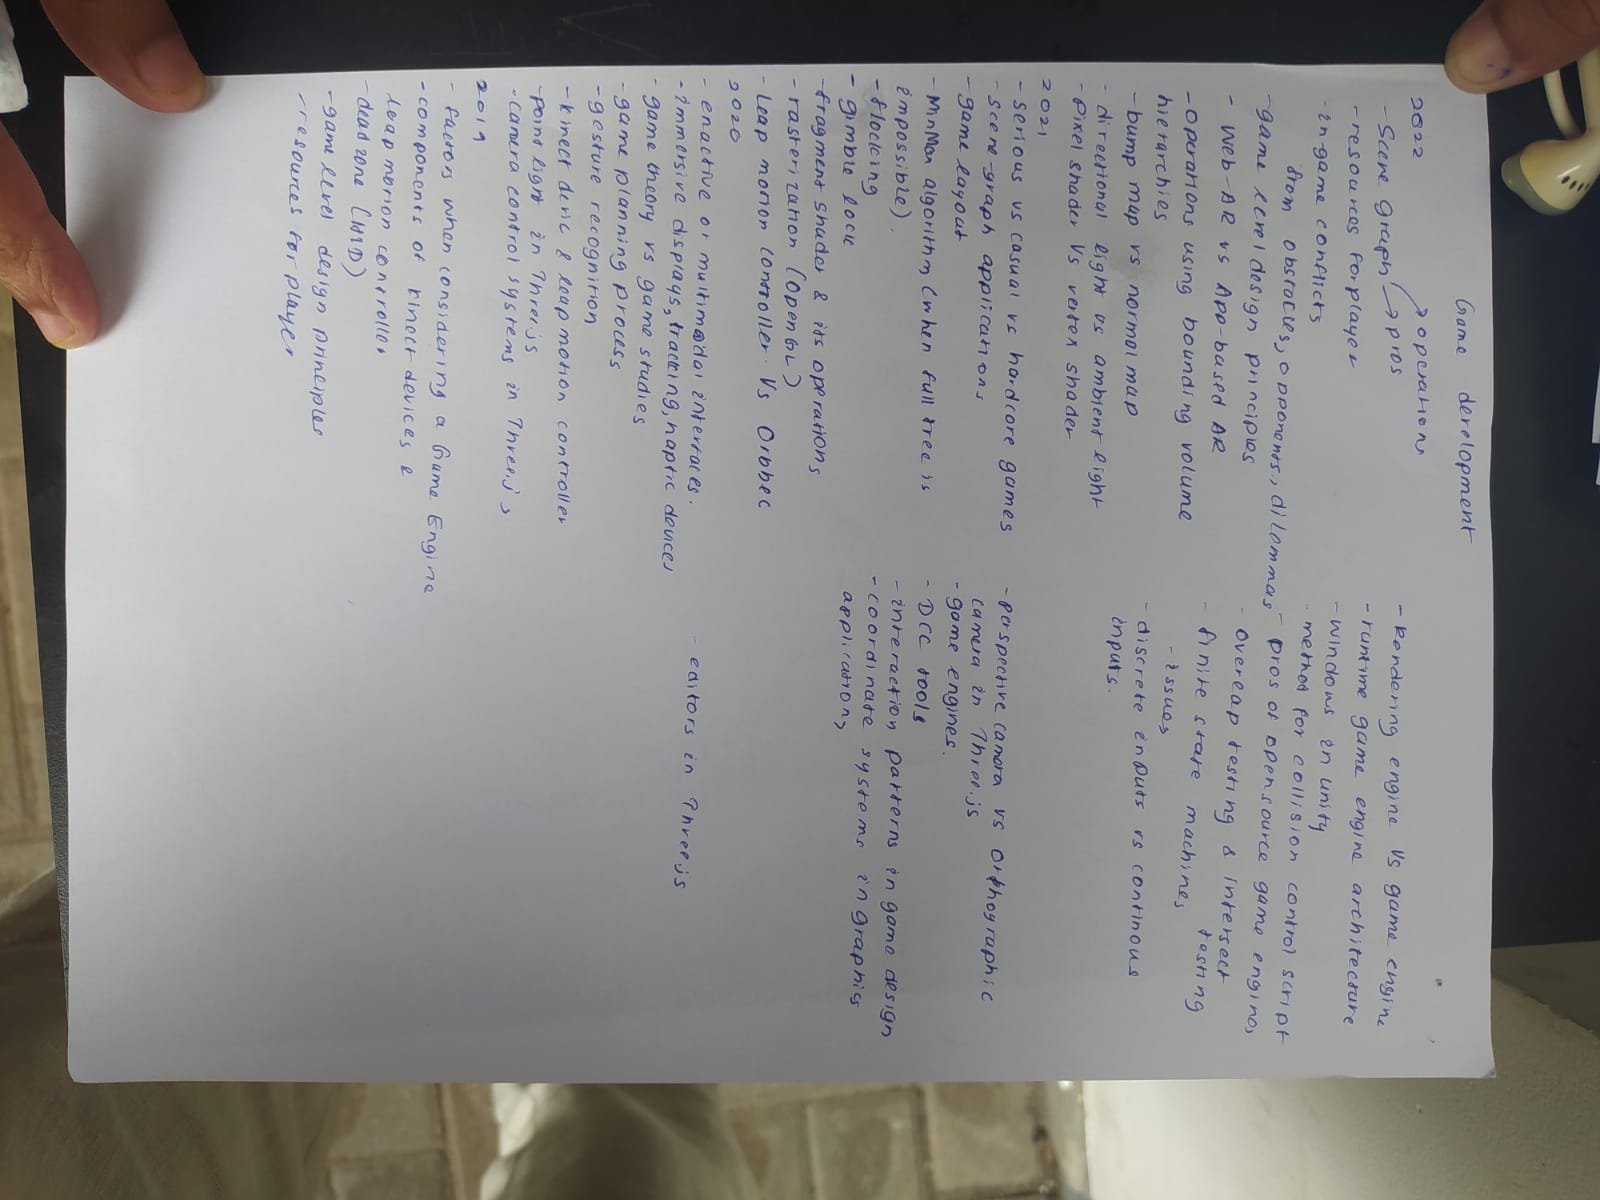 Game development
2022
- Scene graph → operations
→ pros
- resources for player
- in-game conflicts
from obstacles, opponents, dilemmas
- game level design principles
- Web-AR vs App-based AR
- operations using bounding volume
hierarchies
- bump map vs normal map
- directional light vs ambient light
- pixel shader Vs vertex shader
2021
- serious vs casual vs hardcore games
- scene-graph applications
- game layout
- MinMax algorithm (when full tree is
impossible).
- flocking
- gimble lock
- fragment shader & its operations
- rasterization (OpenGL)
- Leap motion controller Vs Orbbec
2020
- enactive or multimodal interfaces.
- immersive displays, tracking, haptic devices
- game theory vs game studies
- game planning process
- gesture recognition
- kinect device & leap motion controller
- point light in Three.js
- camera control systems in Three.js
2019
- factors when considering a Game Engine
- components of kinect devices &
leap motion controller
- dead zone (HID)
- game level design principles
- resources for player
- Rendering engine Vs game engine
- runtime game engine architecture
- windows in unity
- method for collision control script
- pros of opensource game engines
- overlap testing & intersect
testing
- finite state machines
- issues
- discrete inputs vs continous
inputs.
- perspective camera vs Orthographic
camera in Three.js
- game engines.
- DCC tools
- interaction patterns in game design
- coordinate systems in graphics
applications
- editors in Three.js